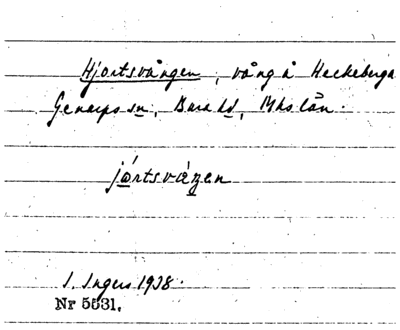 Hjortsvången, vång å Heckeberga
Genarps sn, Bara hd, Mhs län.
jo̱rtsvàŋen
I. Ingers 1938.
Nr 5531.